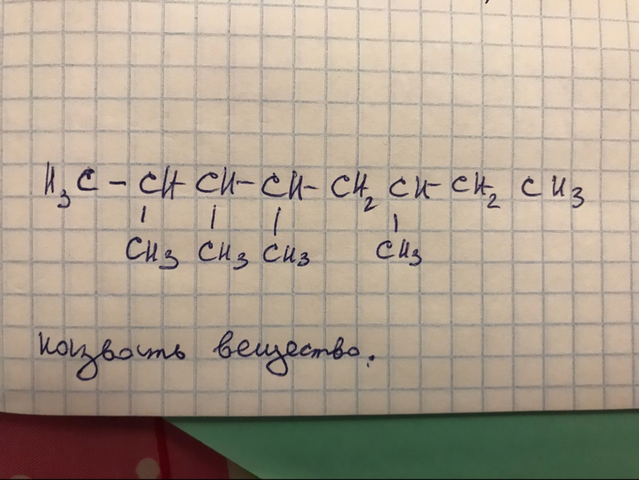 H₃C – CH CH – CH – CH₂ CH – CH₂ CH₃
CH₃ CH₃ CH₃ CH₃
назвать вещество.